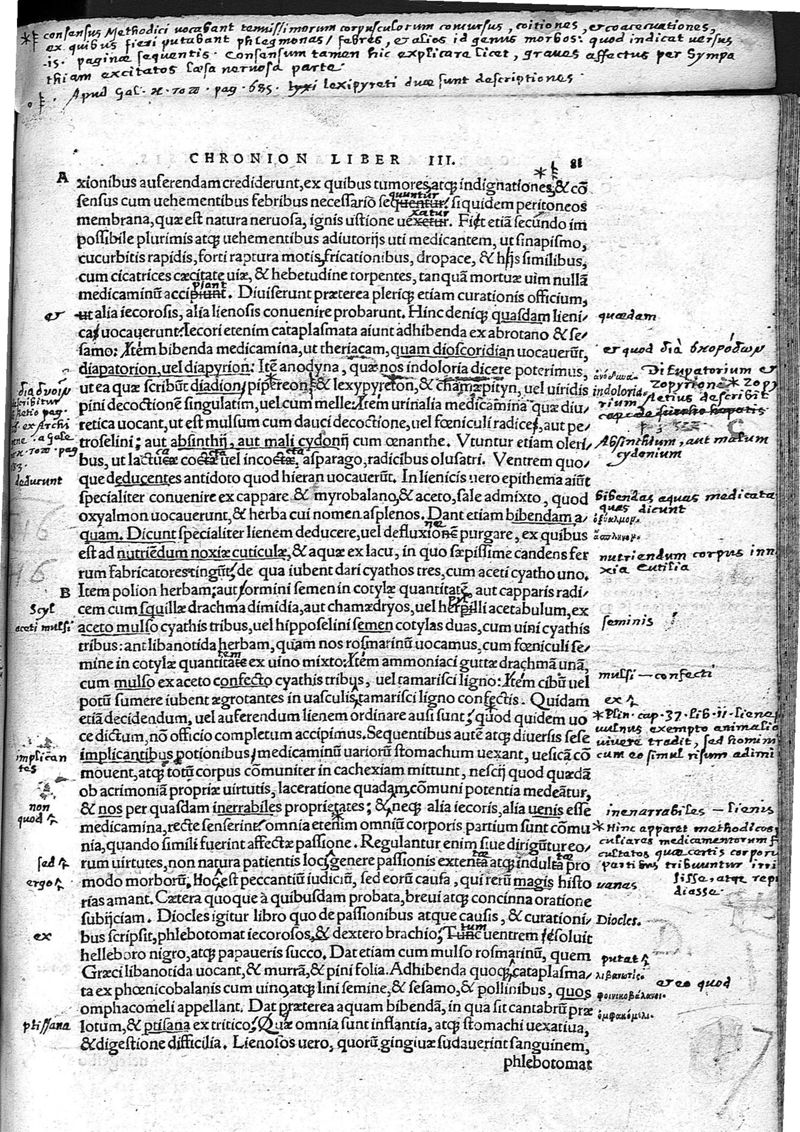 consensus Methodici vocabant tenuissimorum corpusculorum concursus, coitiones, et coacervationes,
ex quibus fieri putabant phlegmonas, febres, et alios id genus morbos: quod indicat versus
is. paginæ sequentis. Consensum tamen hic explicare licet, graves affectus per Sympa
thiam excitatos læsa nervosa parte.
Apud Gal. pag. 685. lexipyreti duæ sunt descriptiones.
CHRONION LIBER III. 81
A
xionibus auferendam crediderunt, ex quibus tumores, atq; indignationes, & cõ
sensus cum uehementibus febribus necessario sequentur: siquidem peritoneos
membrana, quæ est natura neruosa, ignis ustione uexetur. Fiet etiã secundo im
possibile plurimis atq; uehementibus adiutorijs uti medicantem, ut sinapismo,
cucurbitis rapidis, forti raptura motis, fricationibus, dropace, & hijs similibus,
cum cicatrices cæcitate uiæ, & hebetudine torpentes, tanquã mortuæ uim nullã
medicaminũ accipiunt. Diuiserunt præterea pleriq; etiam curationis officium,
ut alia iecorosis, alia lienosis conuenire probarent. Hinc deniq; quasdam lieni/
cas uocauerunt. Iecori etenim cataplasmata aiunt adhibenda ex abrotano & se/
samo: Item bibenda medicamina, ut theriacam, quam dioscoridian uocauerũt,
diapatorion, uel diapyrion: Itẽ anodyna, quæ nos indoloria dicere poterimus,
ut ea quæ scribũt diadion pipereon & lexypyreton, & chamæpityn, uel uiridis
pini decoctionẽ singulatim, uel cum melle: Item urinalia medicamina quæ diu/
retica uocant, ut est mulsum cum dauci decoctione, uel fœniculi radices, aut pe/
troselini; aut absinthij, aut mali cydonij cum œnanthe. Vtuntur etiam oleri/
bus, ut lactuca cocta uel incocta, asparago, radicibus olusatri. Ventrem quo/
que deducentes antidoto quod hieran uocauerũt. In lienicis uero epithema aiũt
specialiter conuenire ex cappare & myrobalano, & aceto, sale admixto, quod
oxyalmon uocauerunt, & herba cui nomen asplenos. Dant etiam bibendam a/
quam. Dicunt specialiter lienem deducere, uel defluxionẽ purgare, ex quibus
est ad nutriẽdum noxiæ cuticulæ, & aquæ ex lacu, in quo sæpissime candens fer
rum fabricatores tingũt, de qua iubent dari cyathos tres, cum aceti cyatho uno.
B
Item polion herbam: aut formini semen in cotylæ quantitatẽ, aut capparis radi/
cem cum squillæ drachma dimidia, aut chamædryos, uel herpilli acetabulum, ex
aceto mulso cyathis tribus, uel hipposelini semen cotylas duas, cum uini cyathis
tribus: ant libanotida herbam, quam nos rosmarinũ uocamus, cum fœniculi se/
mine in cotylæ quantitate ex uino mixto: Itẽ ammoniaci guttæ drachmã unã,
cum mulso ex aceto confecto cyathis tribus, uel tamarisci ligno: Itẽ cibũ uel
potũ sumere iubent ægrotantes in uasculis tamarisci ligno confectis. Quidam
etiã decidendum, uel auferendum lienem ordinare ausi sunt, quod quidem uo
ce dictum, nõ officio completum accipimus. Sequentibus autẽ atq; diuersis sese
implicantibus potionibus, medicaminũ uariorũ stomachum uexant, uesicã cõ
mouent, atq; totũ corpus cõmuniter in cachexiam mittunt, nescij quod quædã
ob acrimoniã propriæ uirtutis, laceratione quadam, cõmuni potentia medeãtur,
& nos per quasdam inerrabiles proprietates; & neq; alia iecoris, alia uenis esse
medicamina, recte senserint: omnia etenim omniũ corporis partium sunt cõmu
nia, quando simili fuerint affectæ passione. Regulantur enim siue dirigũtur eo/
rum uirtutes, non natura patientis loci, genere passionis extenta atq; indulta pro
modo morborũ. Hoc est peccantiũ iudiciũ, sed eorũ caufa, qui rerũ magis histo
rias amant. Cætera quoque à quibusdam probata, breui atq; concinna oratione
subijciam. Diocles igitur libro quo de passionibus atque causis, & curationi/
bus scripsit, phlebotomat iecorosos, & dextero brachio: Tunc uentrem resoluit
helleboro nigro, atq; papaueris succo. Dat etiam cum mulso rosmarinũ, quem
Græci libanotida uocant, & murrã, & pini folia. Adhibenda quoq; cataplasma/
ta ex phœnicobalanis cum uino, atq; lini semine, & sesamo, & pollinibus, quos
omphacomeli appellant. Dat præterea aquam bibendã, in qua sit cantabrũ præ
lotum, & ptisana ex tritico: Quæ omnia sunt inflantia, atq; stomachi uexatiua,
& digestione difficilia. Lienosos uero, quorũ gingiuæ sudauerint sanguinem,
phlebotomat
et
deducunt
Scyl
aceti mulsi
implican
tes
non
quod
sed
ergo
ex
ptissana
quædam
et quod διὰ σκορόδων
indoloria
Absinthium, aut malum
cydonium
bibendas aquas medicata
quas dicunt
nutriendum corpus inno
xia
seminis
mulsi — confecti
ex
*Plin. cap. 37. lib. 11. liene
vulnus exempto animalia
vivere tradit, sed homini
cum eo simul risum adimi
inenarrabiles — lienis
*Hinc apparet methodicos
culiares medicamentorum f
cultates quæ certis corpori
partibus tribuuntur
isse, atque repu
diasse.
vanas
Diocles.
putat
λιβανωτίς.
et eo quod
φοινικοβάλανοι.
ὀμφακόμελι.